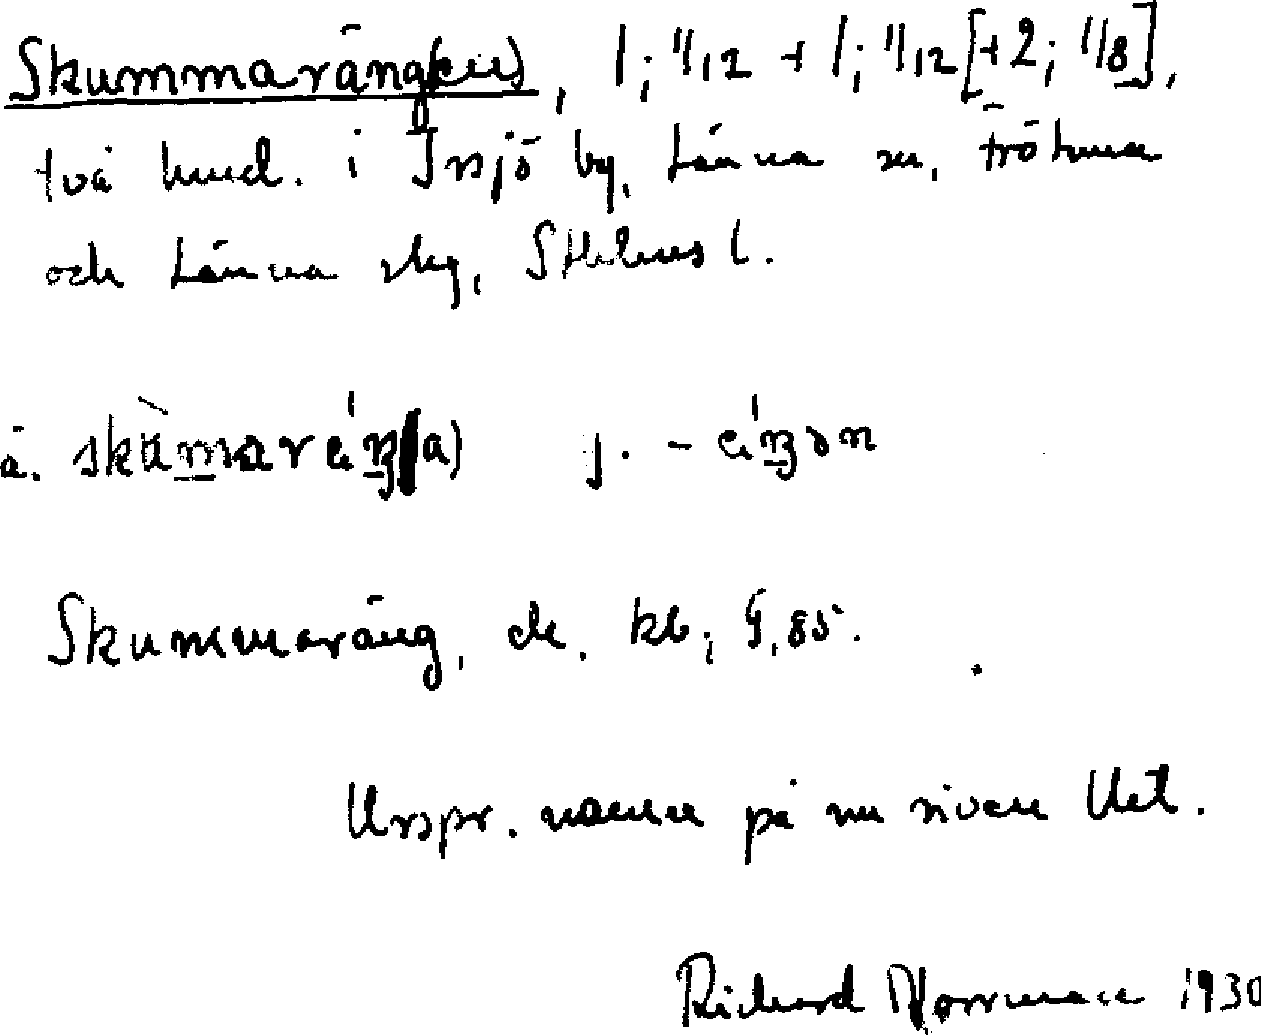 Skummaräng(en), 1; 1/12 + 1; 1/12 [+2; 1/8],
två hmd. i Insjö by, Länna sn, Frötuna
och Länna skg, Sthlms l.
a. j.
Skummaräng, de. kb; G, 85.
Urspr. namn på nu riven lht.
Richard Norrman 1930